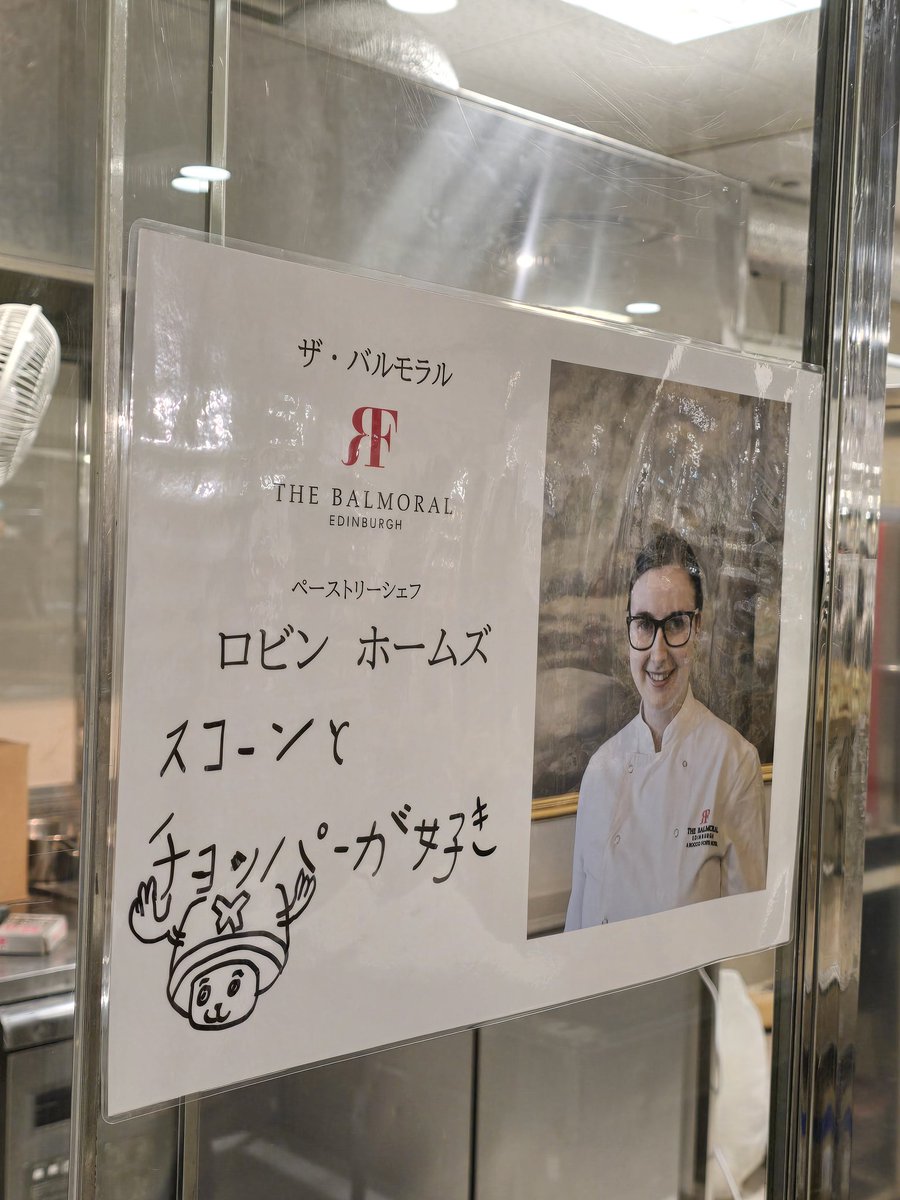 ザ・バルモラル
RF
THE BALMORAL
EDINBURGH
ペーストリーシェフ
ロビン ホームズ
スコーンと
チョッパーが好き
RF
THE BALMORAL
EDINBURGH
A ROCCO FORTE HOTEL